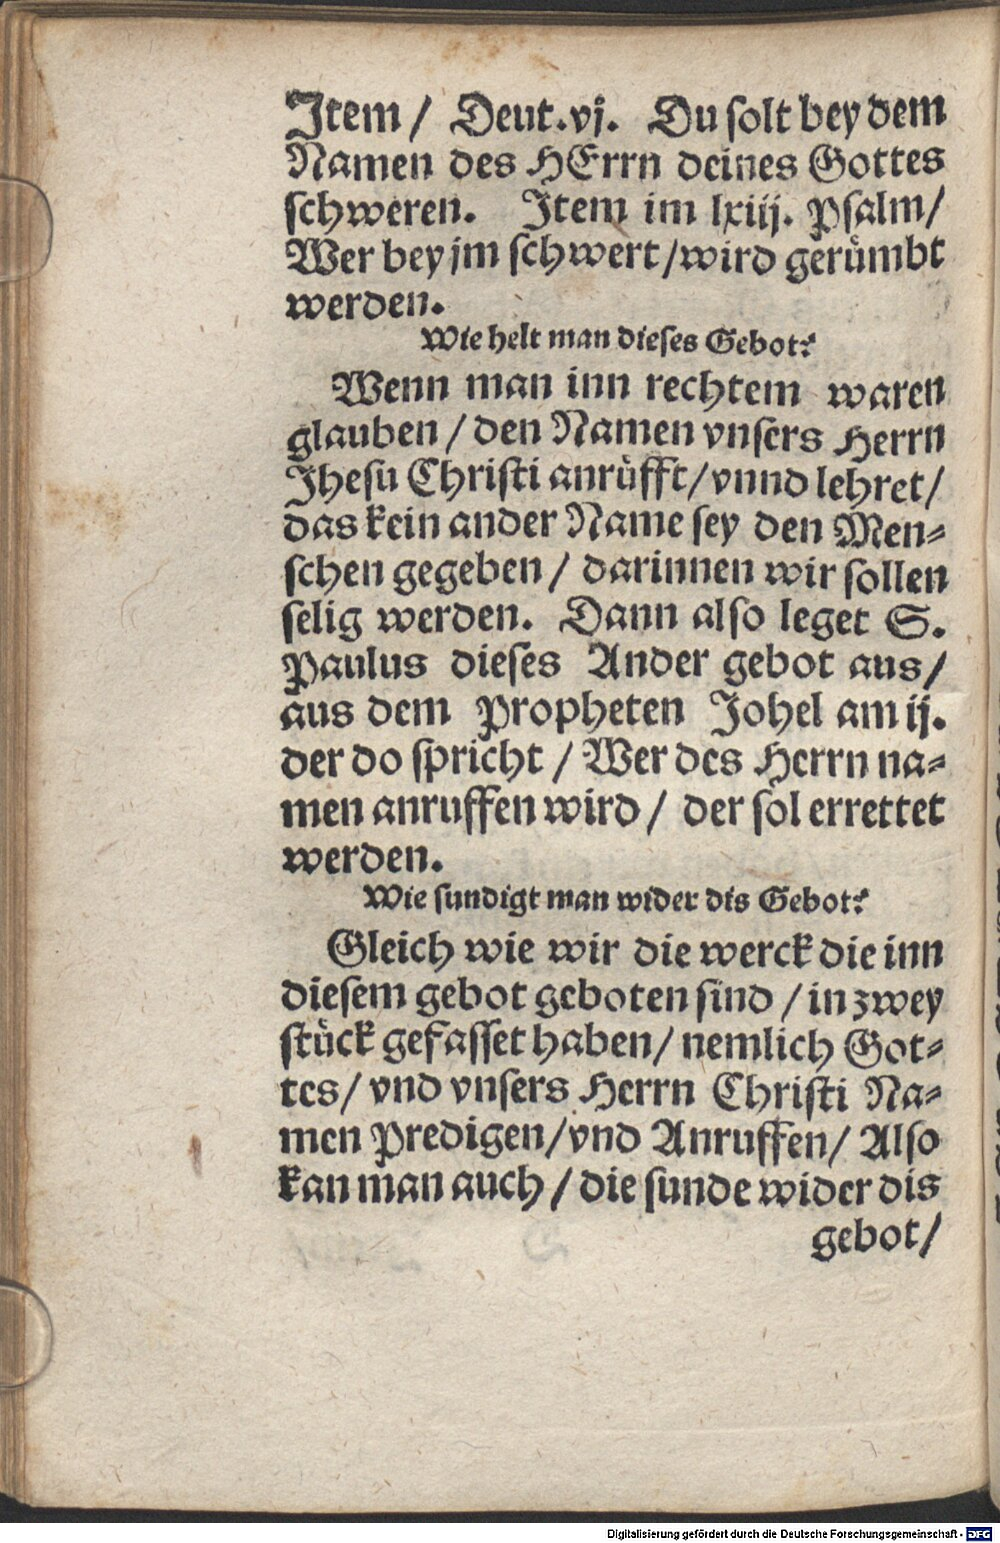 Item / Deut. vj. Du solt bey dem
Namen des HErrn deines Gottes
schweren. Item im lxiij. Psalm /
Wer bey jm schwert / wird gerůmbt
werden.
Wie helt man dieses Gebot?
Wenn man inn rechtem waren
glauben / den Namen vnsers Herrn
Jhesu Christi anrůfft / vnnd lehret /
das kein ander Name sey den Men-
schen gegeben / darinnen wir sollen
selig werden. Dann also leget S.
Paulus dieses Ander gebot aus /
aus dem Propheten Johel am ij.
der do spricht / Wer des Herrn na-
men anruffen wird / der sol errettet
werden.
Wie sundigt man wider dis Gebot?
Gleich wie wir die werck die inn
diesem gebot geboten sind / in zwey
stůck gefasset haben / nemlich Got-
tes / vnd vnsers Herrn Christi Na-
men Predigen / vnd Anruffen / Also
kan man auch / die sunde wider dis
gebot /
Digitalisierung gefördert durch die Deutsche Forschungsgemeinschaft - DFG